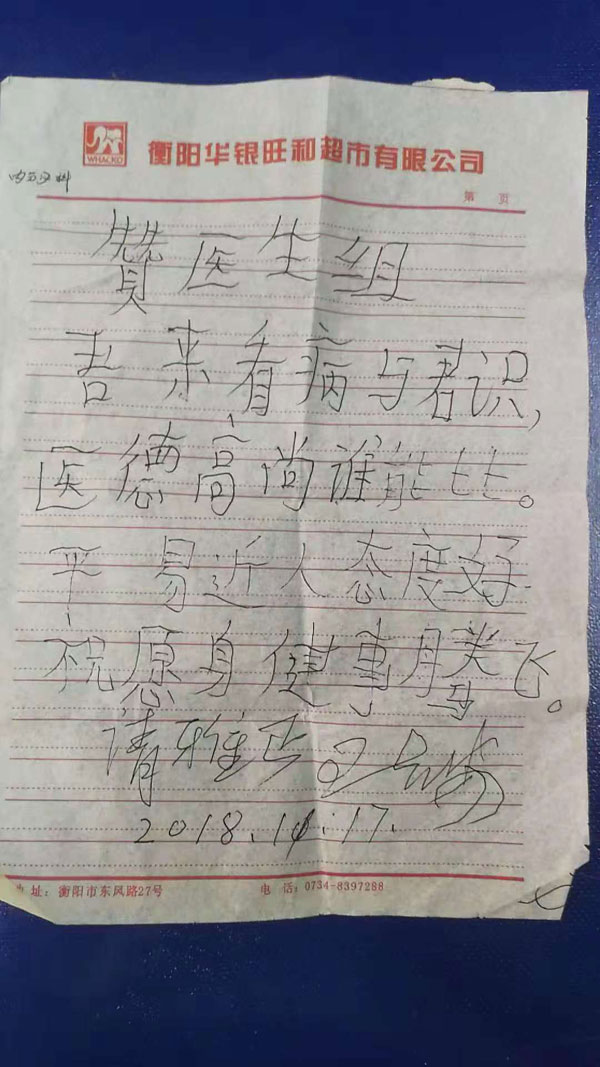 WHACKO
衡阳华银旺和超市有限公司
第 页
赞医生组
吾来看病与君识,
医德高尚谁能比。
平易近人态度好
祝愿身健事腾飞。
请雅正
2018.11.17.
地址: 衡阳市东风路27号 电 话: 0734-8397288